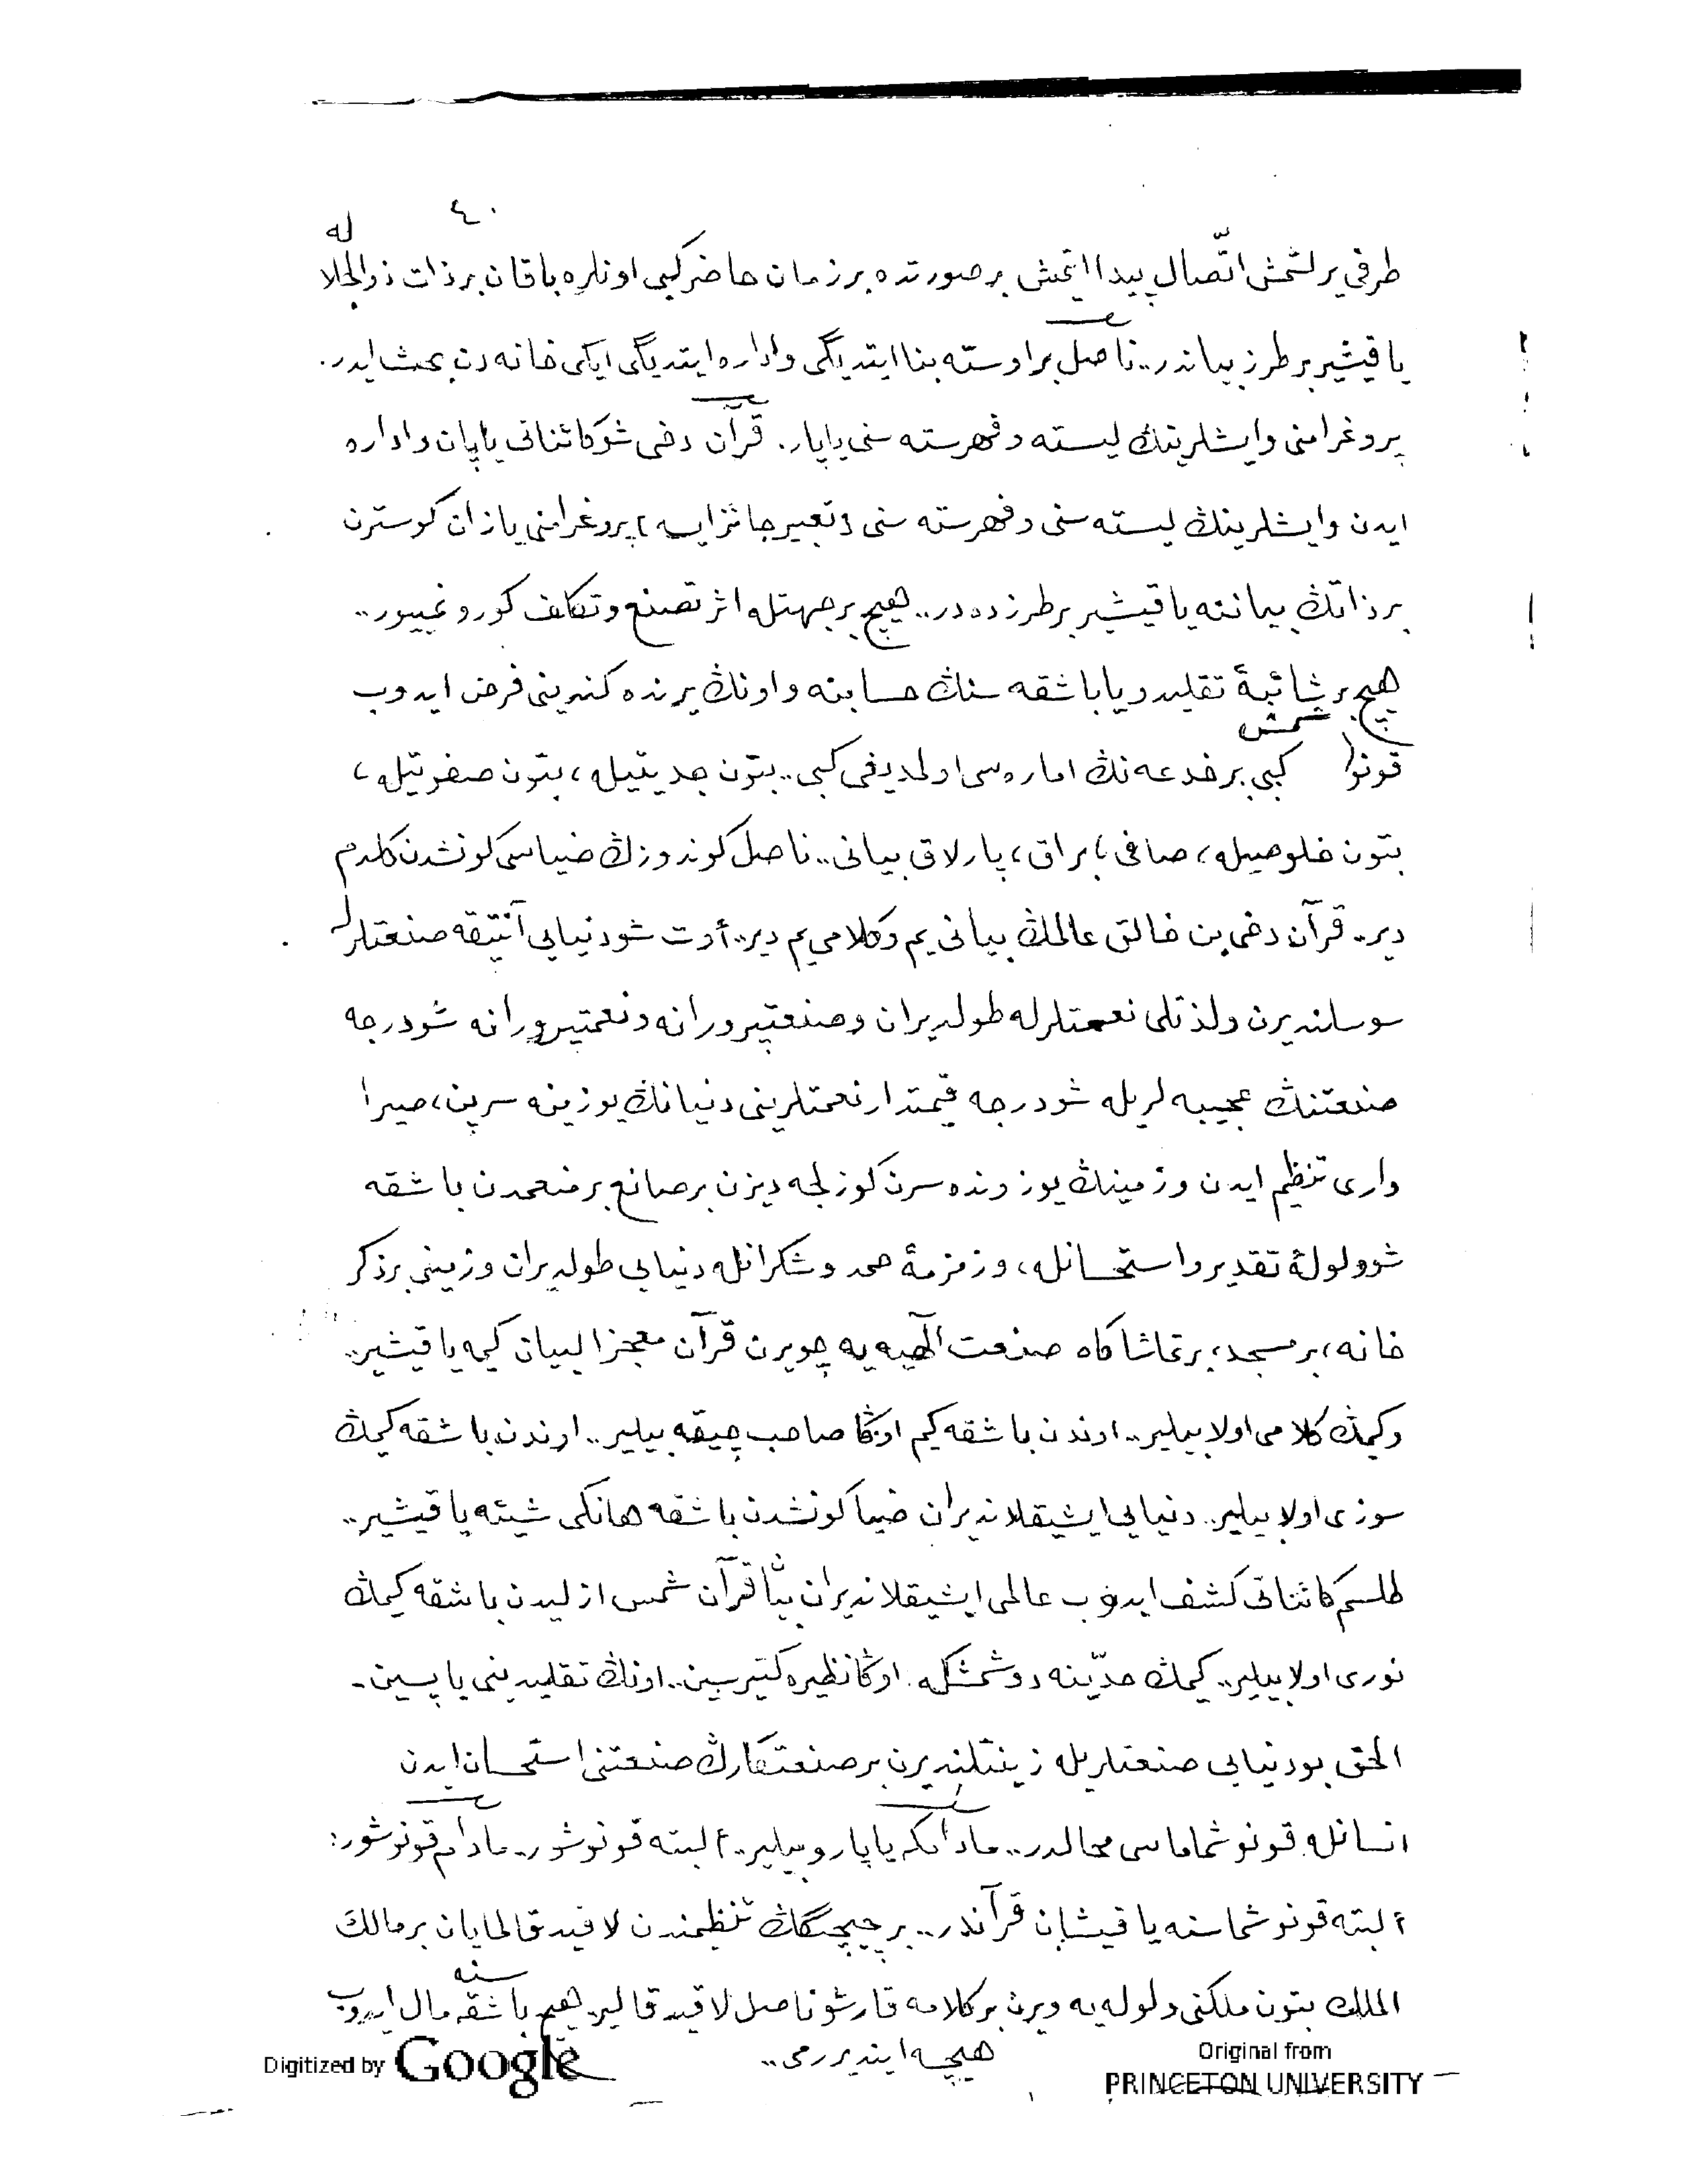 ٤٠
طرفی برلشمش اتّصال پیدا ایتمش بر صورتده بر زمان حاضر كبی اونلره باقان بر ذات ذوالجلاله
یاقیشیر بر طرز بیاندر.. ناصل بر اوستہ بنا ایتدیگی و اداره ایتدیگی ایكی خانه دن بحث ایدر.
پروغرامنی و ایشلرینڭ لیسته و فهرسته سنی یاپار. قرآن دخی شو كائناتی یاپان و اداره
ایدن و ایشلرینڭ لیسته سنی و فهرسته سنی ( تعبیر جائز ایسه ) پروغرامنی یازان كوسترن
بر ذاتڭ بیاننه یاقیشیر بر طرزده در.. هیچ بر جهتله اثر تصنع و تكلف كورونمییور..
هیچ بر شائبهٔ تقلید و یا باشقه سنڭ حسابنه و اونڭ یرنده كندینی فرض ایدوب
قونوشمش كبی بر خدعه نڭ اماره سی اولمدیغی كبی.. بتون جدیتیله، بتون صفوتیله،
بتون خلوصیله، صافی، براق، پارلاق بیانی.. ناصل كوندوزڭ ضیاسی كونشدن كلدم
دیر.. قرآن دخی بن خالق عالمڭ بیانی یم و كلامی یم دیر.. أوت شو دنیایی آنتیقه صنعتلرله
سوسلندیرن ولذتلی نعمتلرله طولدیران و صنعتپرورانه و نعمتپرورانه شو درجه
صنعتنڭ عجیبه لریله شو درجه قیمتدار نعمتلرینی دنیانڭ یوزینه سرپن، صیرا
واری تنظیم ایدن و زمینڭ یوزونده سرن كوزلجه دیزن بر صانع بر منعمدن باشقه
شو ولولهٔ تقدیر و استحسانله، و زمزمهٔ حمد و شكرانله دنیایی طولدیران و زمینی بر ذكر
خانه، بر مسجد، بر تماشاكاه صنعت الٓهیه یه چویرن قرآن معجز البیان كیمه یاقیشیر..
و كیمڭ كلامی اولابیلیر.. اوندن باشقه كیم اوڭا صاحب چیقه بیلیر.. اوندن باشقه كیمڭ
سوزی اولابیلیر.. دنیایی ایشیقلاندیران ضیا كونشدن باشقه هانكی شیئه یاقیشیر..
طلسم كائناتی كشف ایدوب عالمی ایشیقلاندیران بیان قرآن شمس ازلیدن باشقه كیمڭ
نوری اولابیلیر.. كیمڭ حدّینه دوشمشكه اوڭا نظیره كتیرسین.. اونڭ تقلیدینی یاپسین.
الحق بو دنیایی صنعتلریله زینتلندیرن بر صنعتكارڭ صنعتنی استحسان ایدن
انسانله قونوشماماسی محالدر.. مادامكه یاپار و بیلیر.. ألبته قونوشور.. مادام قونوشور:
ألبته قونوشماسنه یاقیشان قرآندر.. بر چیچگڭ تنظیمندن لاقید قالمایان بر مالك
الملك بتون ملكنی ولوله یه ویرن بر كلامه قارشو ناصل لاقید قالیر هیچ باشقه سنه مال ایدوب
هیچه ایندیررمی..
Digitized by Google
Original from
PRINCETON UNIVERSITY